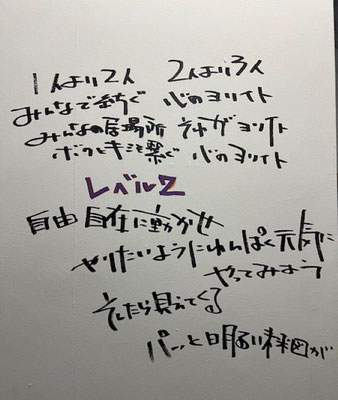 1人より2人 2人より3人
みんなで紡ぐ 心のヨリイト
みんなの居場所 それがヨリイト
ボクとキミを繋ぐ 心のヨリイト
レベル2
自由自在に動かせ
やりたいようにわんぱく元気に
やってみよう
そしたら見えてくる
パーッと明るい未来図が